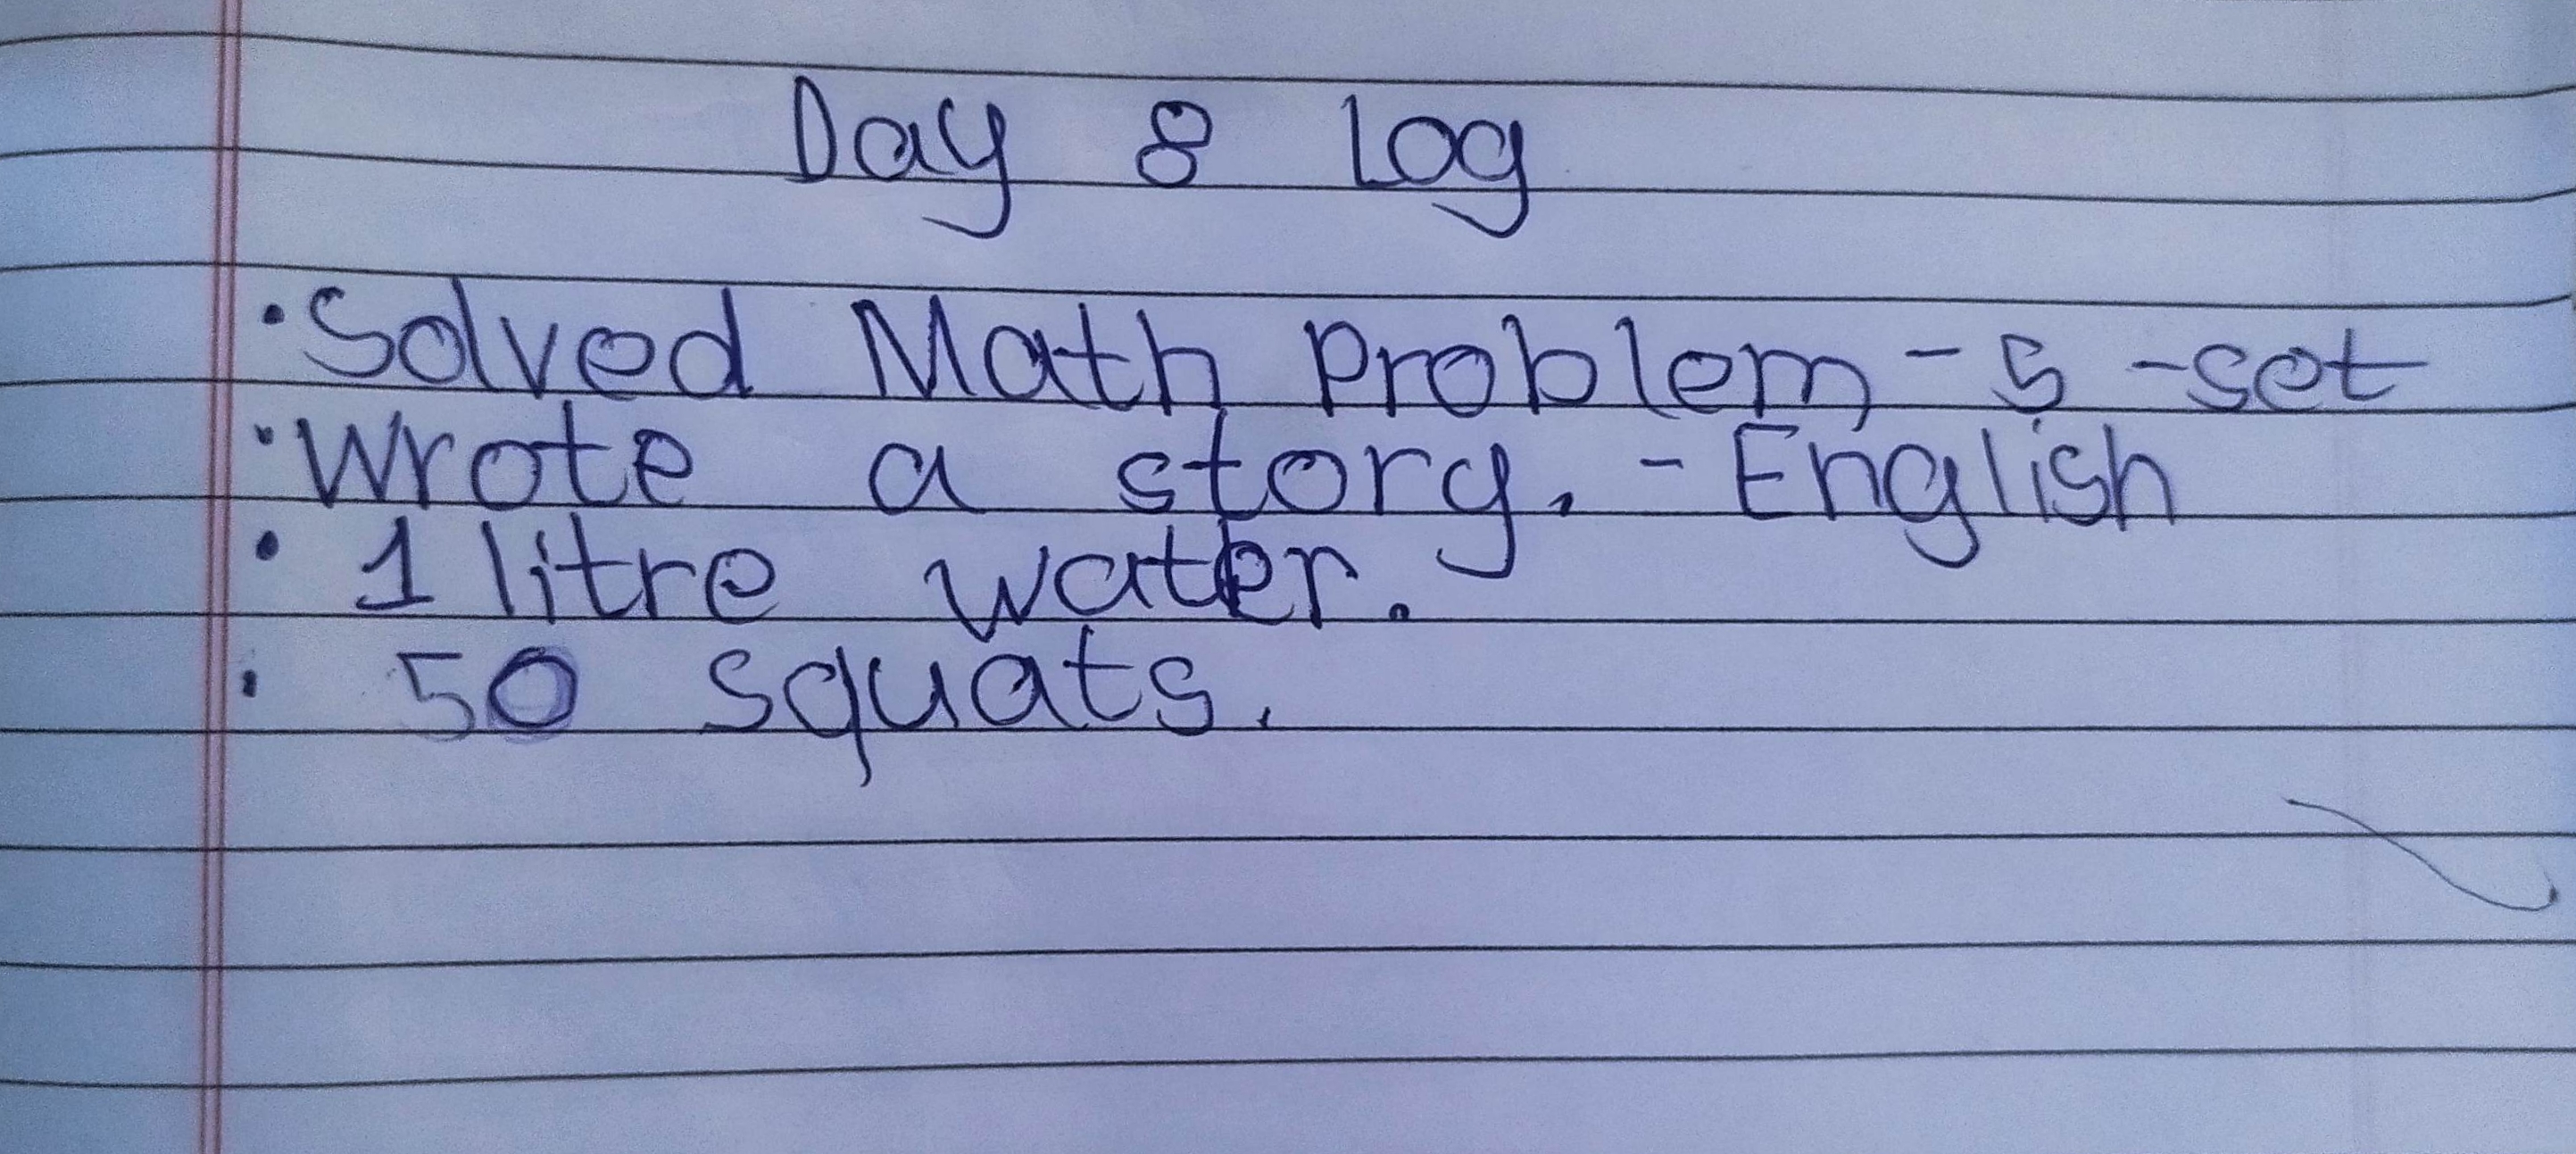 Day 8 Log
• Solved Math Problem - 5 - set
• Wrote a story. - English
• 1 litre water.
• 50 squats.